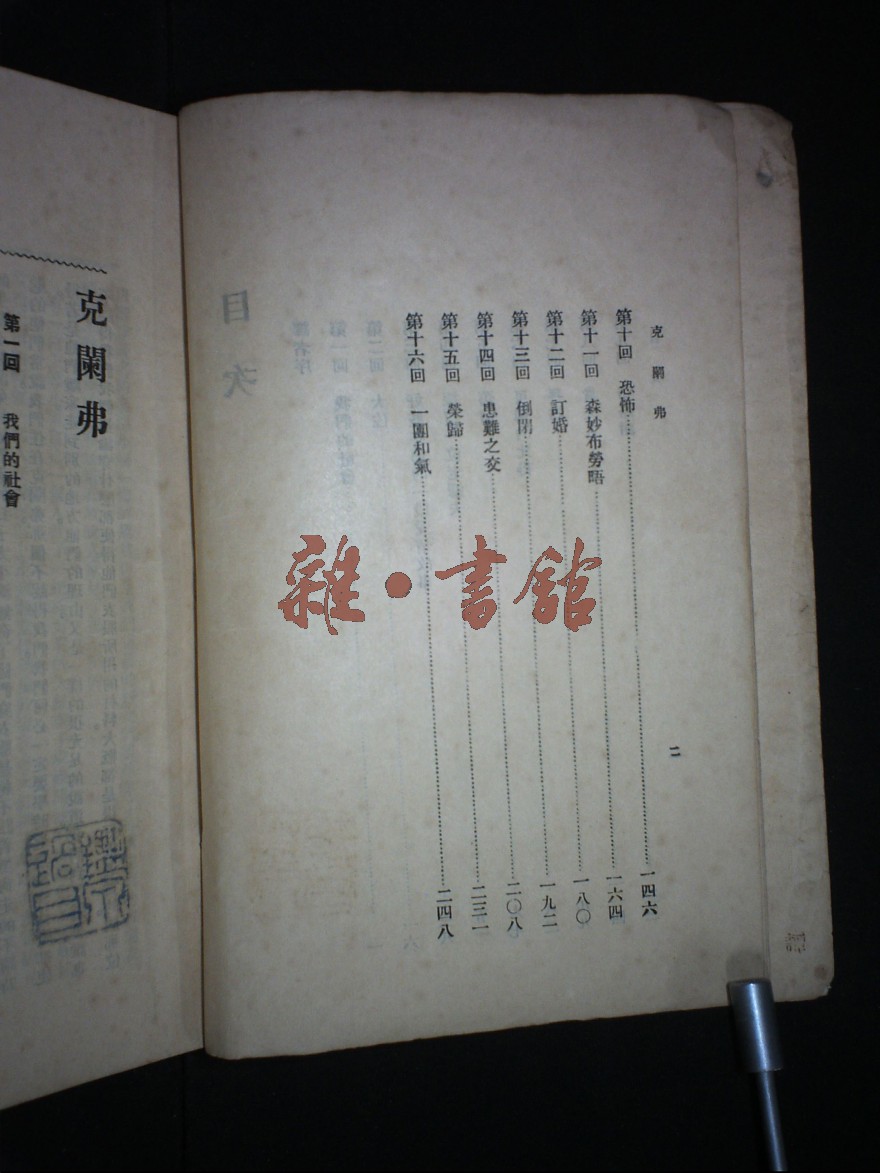 克闌弗
二
第十回 恐怖 一四六
第十一回 森妙布勞晤 一六四
第十二回 訂婚 一八〇
第十三回 倒閉 一九二
第十四回 患難之交 二〇八
第十五回 榮歸 二三一
第十六回 一團和氣 二四八
克闌弗
第一回 我們的社會
雜·書館